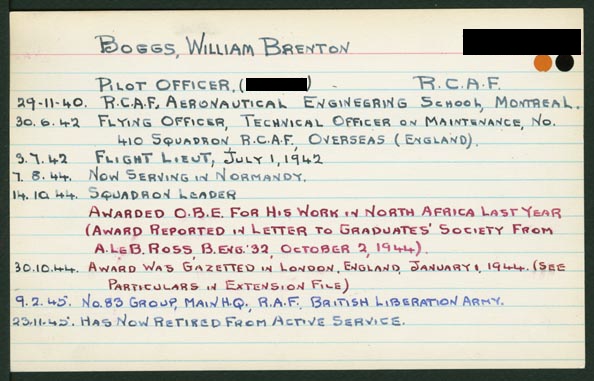 BOGGS, WILLIAM BRENTON
PILOT OFFICER, ( ) R.C.A.F.
29-11-40. R.C.A.F. AERONAUTICAL ENGINEERING SCHOOL, MONTREAL.
30.6.42 FLYING OFFICER, TECHNICAL OFFICER ON MAINTENANCE, NO.
410 SQUADRON, R.C.A.F., OVERSEAS (ENGLAND).
3.7.42 FLIGHT LIEUT, JULY 1, 1942
7.8.44. NOW SERVING IN NORMANDY.
14.10.44. SQUADRON LEADER
AWARDED O.B.E. FOR HIS WORK IN NORTH AFRICA LAST YEAR
(AWARD REPORTED IN LETTER TO GRADUATES' SOCIETY FROM
A. LEB. ROSS, B.ENG. '32, OCTOBER 2, 1944).
30.10.44. AWARD WAS GAZETTED IN LONDON, ENGLAND, JANUARY 1, 1944. (SEE
PARTICULARS IN EXTENSION FILE)
9.2.45. NO. 83 GROUP, MAIN H.Q., R.A.F. BRITISH LIBERATION ARMY.
23.11.45. HAS NOW RETIRED FROM ACTIVE SERVICE.